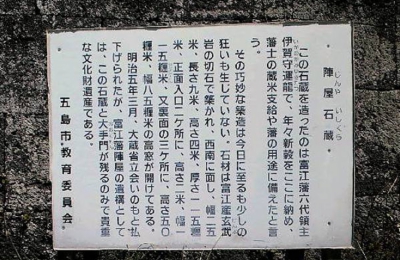 ・陣屋石蔵・
じんやいしくら
この石蔵を造ったのは富江藩六代領主
伊賀守運龍で、年々新穀をここに納め、
藩士の蔵米支給や藩の用途に備えたと言
う。
その巧妙な築造は今日に至るも少しの
狂いも生じていない。石材は富江産玄武
岩の切石で築かれ、西南に面し、幅二五
米、長さ九米、高さ四米、厚さ一一五糎
米、正面入口二ケ所に、高さ二米、幅一
一五糎米、又裏面の三ケ所に、高さ五〇
糎米、幅八五糎米の高窓が開けてある。
明治五年三月、大蔵省立会いのもと払
下げられたが、富江藩陣屋の遺構として
は、この石蔵と大手門が残るのみで貴重
な文化財遺産である。
五島市教育委員会